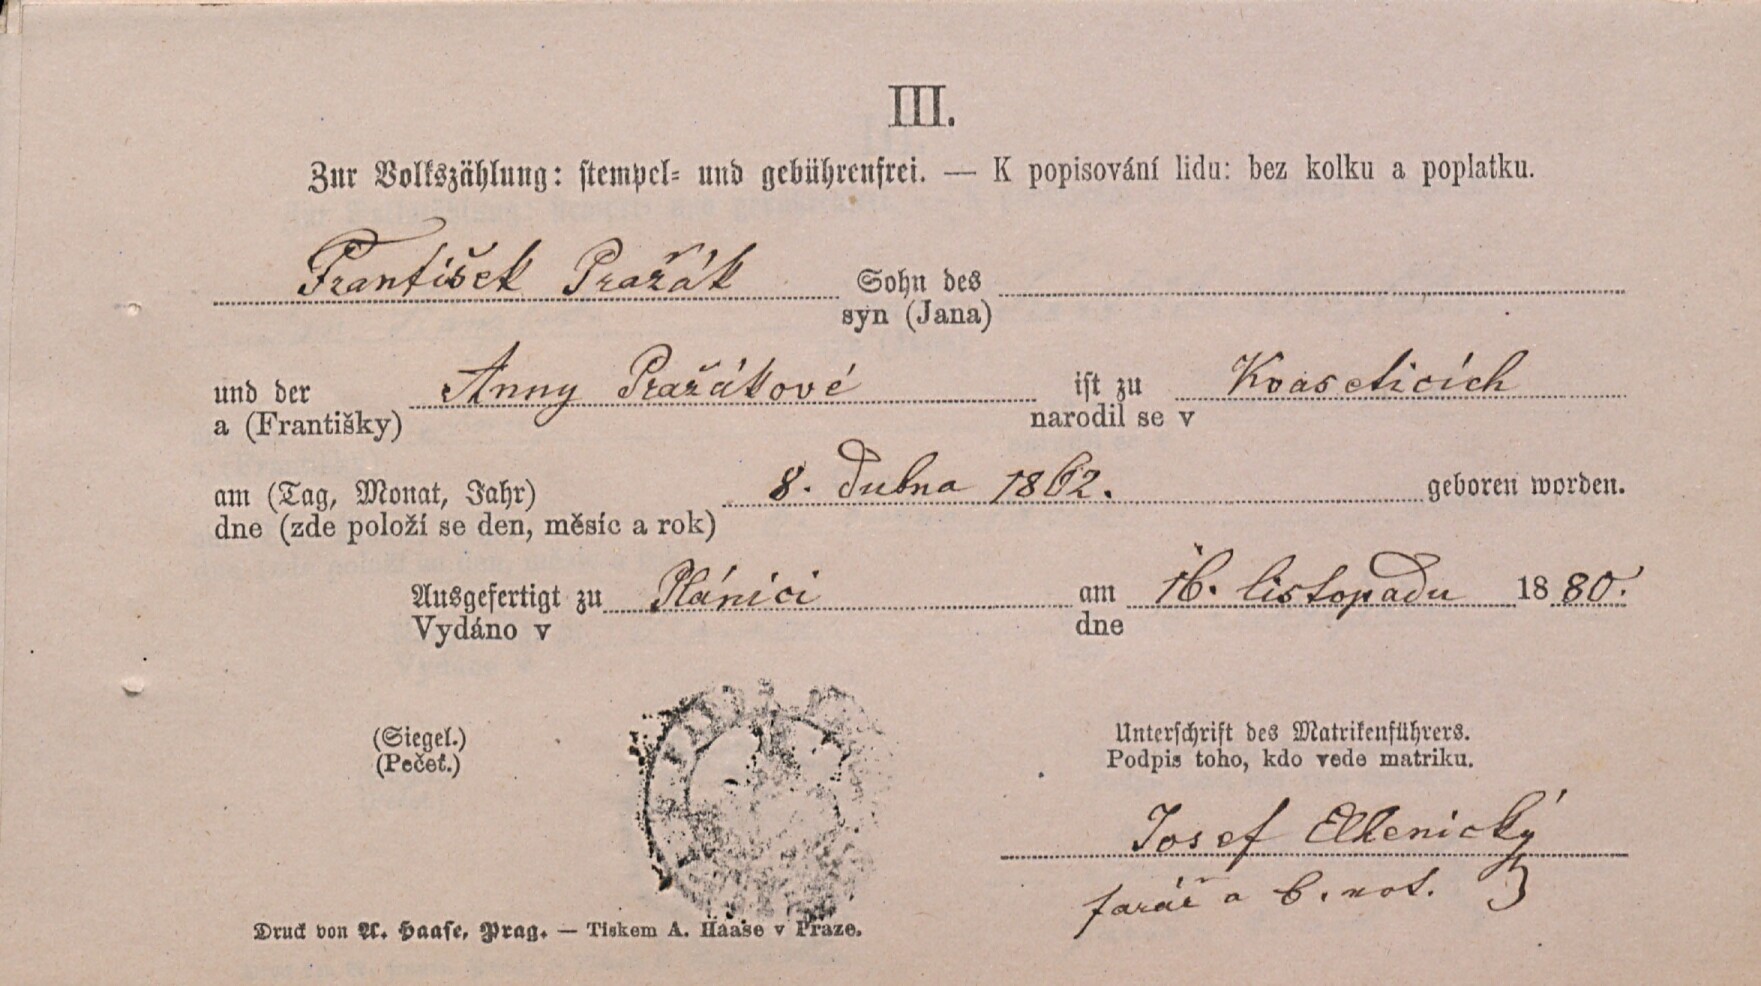 III.
Zur Volkszählung: stempel- und gebührenfrei. — K popisování lidu: bez kolku a poplatku.
František Pražák Sohn des
syn (Jana)
und der Anny Pražákové ist zu Kvaseticích
a (Františky) narodil se v
am (Tag, Monat, Jahr) 8. dubna 1862. geboren worden.
dne (zde položí se den, měsíc a rok)
Ausgefertigt zu Plánici am 16. listopadu 1880.
Vydáno v dne
(Siegel.) Unterschrift des Matrikenführers.
(Pečeť.) Podpis toho, kdo vede matriku.
Josef
farář a b. not.
Druck von A. Haase, Prag. — Tiskem A. Haase v Praze.